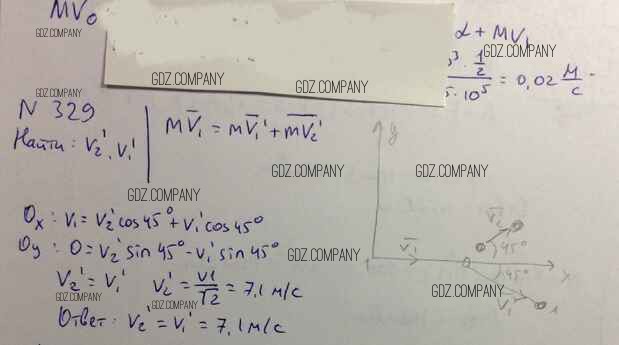 MV₀
α + MV₁
GDZ.COMPANY
GDZ.COMPANY
³ · 1/2
5 · 10⁵ = 0,02 м/с
GDZ.COMPANY
GDZ.COMPANY
GDZ.COMPANY
N 329
Найти: V₂', V₁'
mV̄₁ = mV̄₁' + mV̄₂'
y
GDZ.COMPANY
GDZ.COMPANY
GDZ.COMPANY
Ox: V₁ = V₂' cos 45° + V₁' cos 45°
V̄₂'
Oy: 0 = V₂' sin 45° - V₁' sin 45°
GDZ.COMPANY
V̄₁
45°
45°
x
V₂' = V₁' V₂' = V1/√2 = 7,1 м/с
GDZ.COMPANY
GDZ.COMPANY
GDZ.COMPANY
V₁'
1
Ответ: V₂' = V₁' = 7,1 м/с